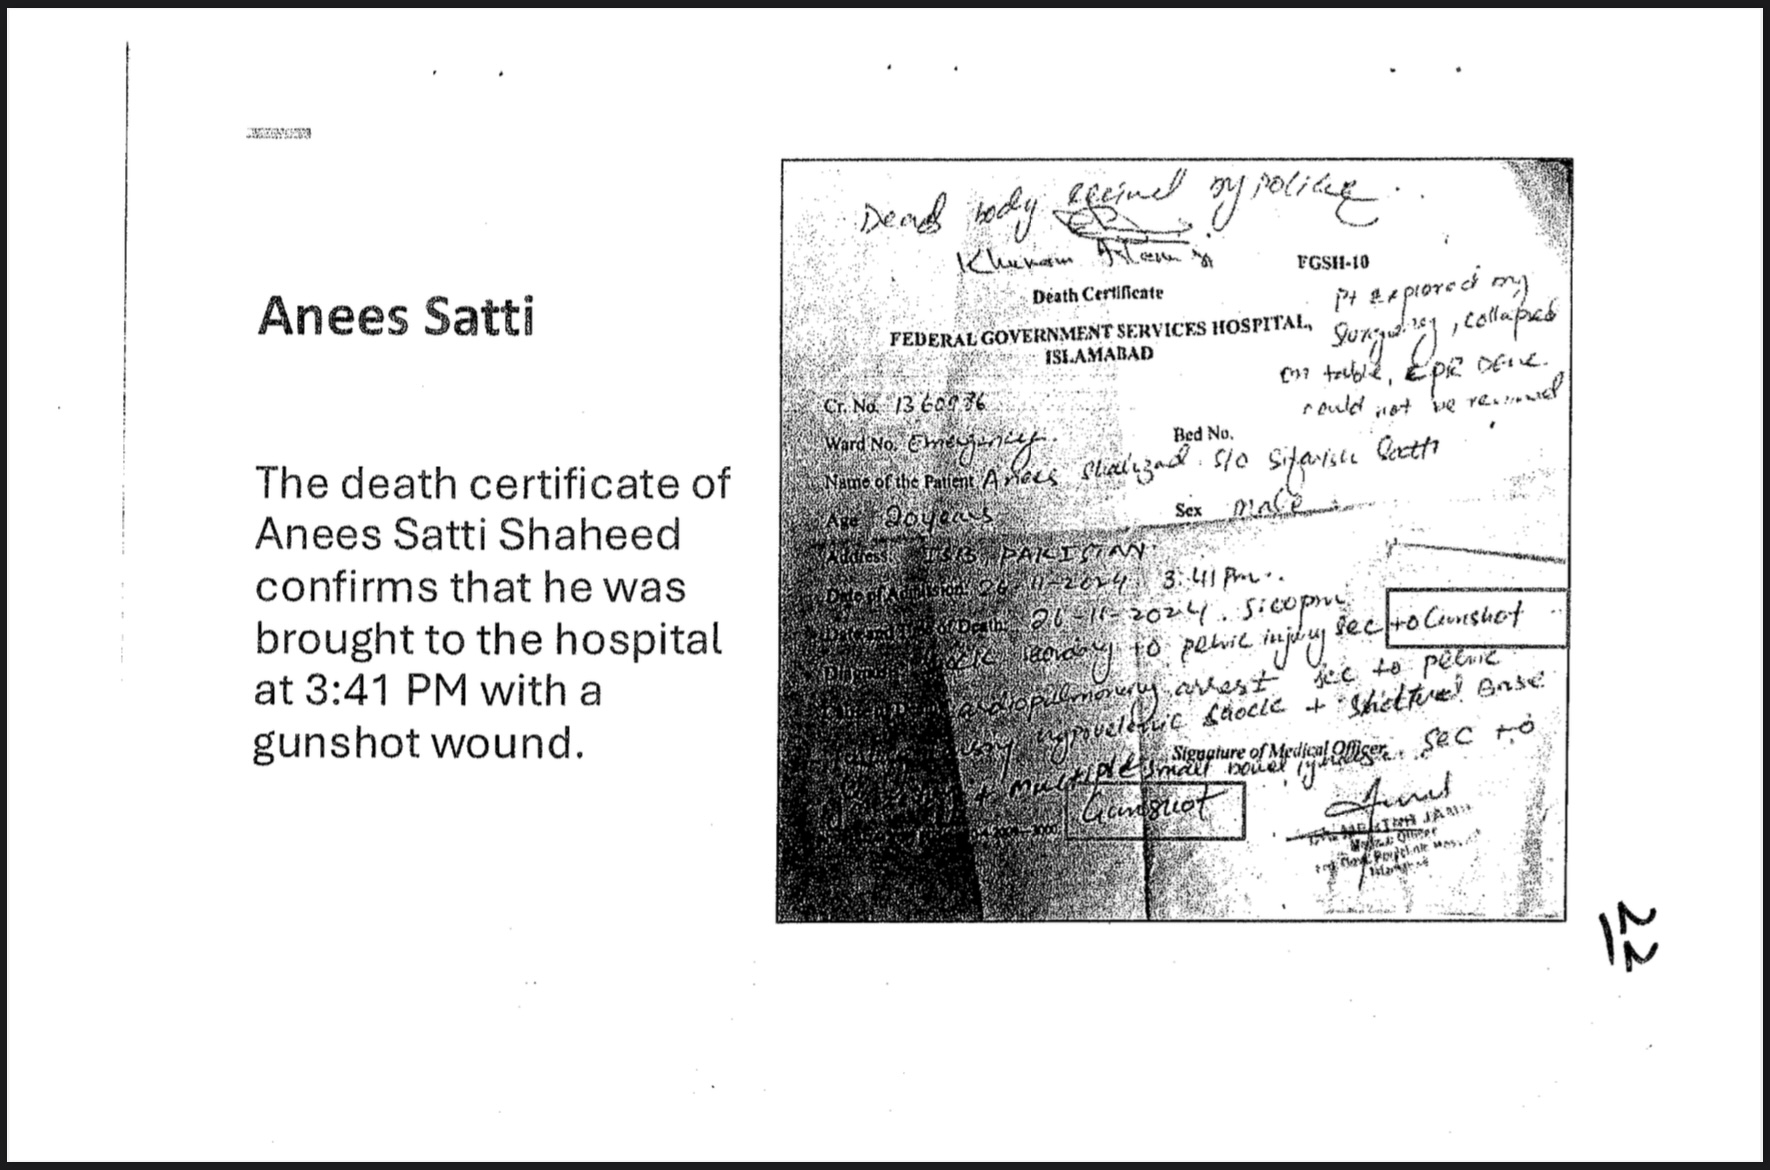 Anees Satti
The death certificate of
Anees Satti Shaheed
confirms that he was
brought to the hospital
at 3:41 PM with a
gunshot wound.
Dead body received by police
Khuram
FGSH-10
Death Certificate
FEDERAL GOVERNMENT SERVICES HOSPITAL,
ISLAMABAD
Pt explored by
Surgery, collapsed
on table, CPR Done.
could not be revived
Cr. No. 1360936
Ward No. Emergency.
Bed No.
Name of the Patient Anees Shahzad S/O Sifarish Satti
Age 20 years
Sex Male
Address: ISB, PAKISTAN
Date of Admission: 26-11-2024 3:41 Pm.
Date and Time of Death: 26-11-2024. 5:00pm
Diagnosis secondary to pelvic injury sec to Gunshot
cardiopulmonary arrest sec to pelvic
injury hypovolemic shock + shattered Base
Signature of Medical Officer
+ multiple small bowel sec to
Gunshot
Medical Officer
Islamabad
122